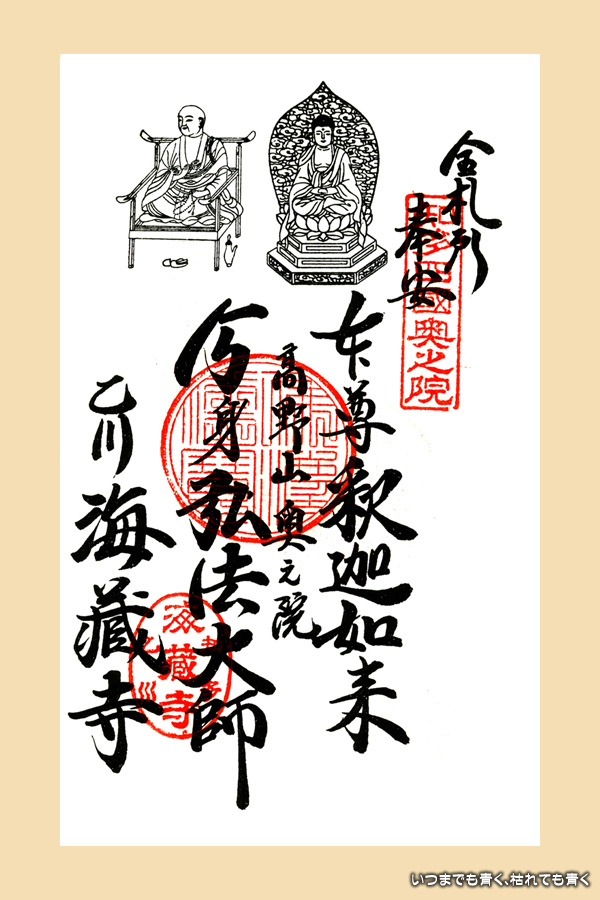 全札所
奉安
知多四國奥之院
本尊釈迦如来
高野山奥之院
今身弘法大師
乙川海藏寺
海藏寺
いつまでも青く、枯れても青く